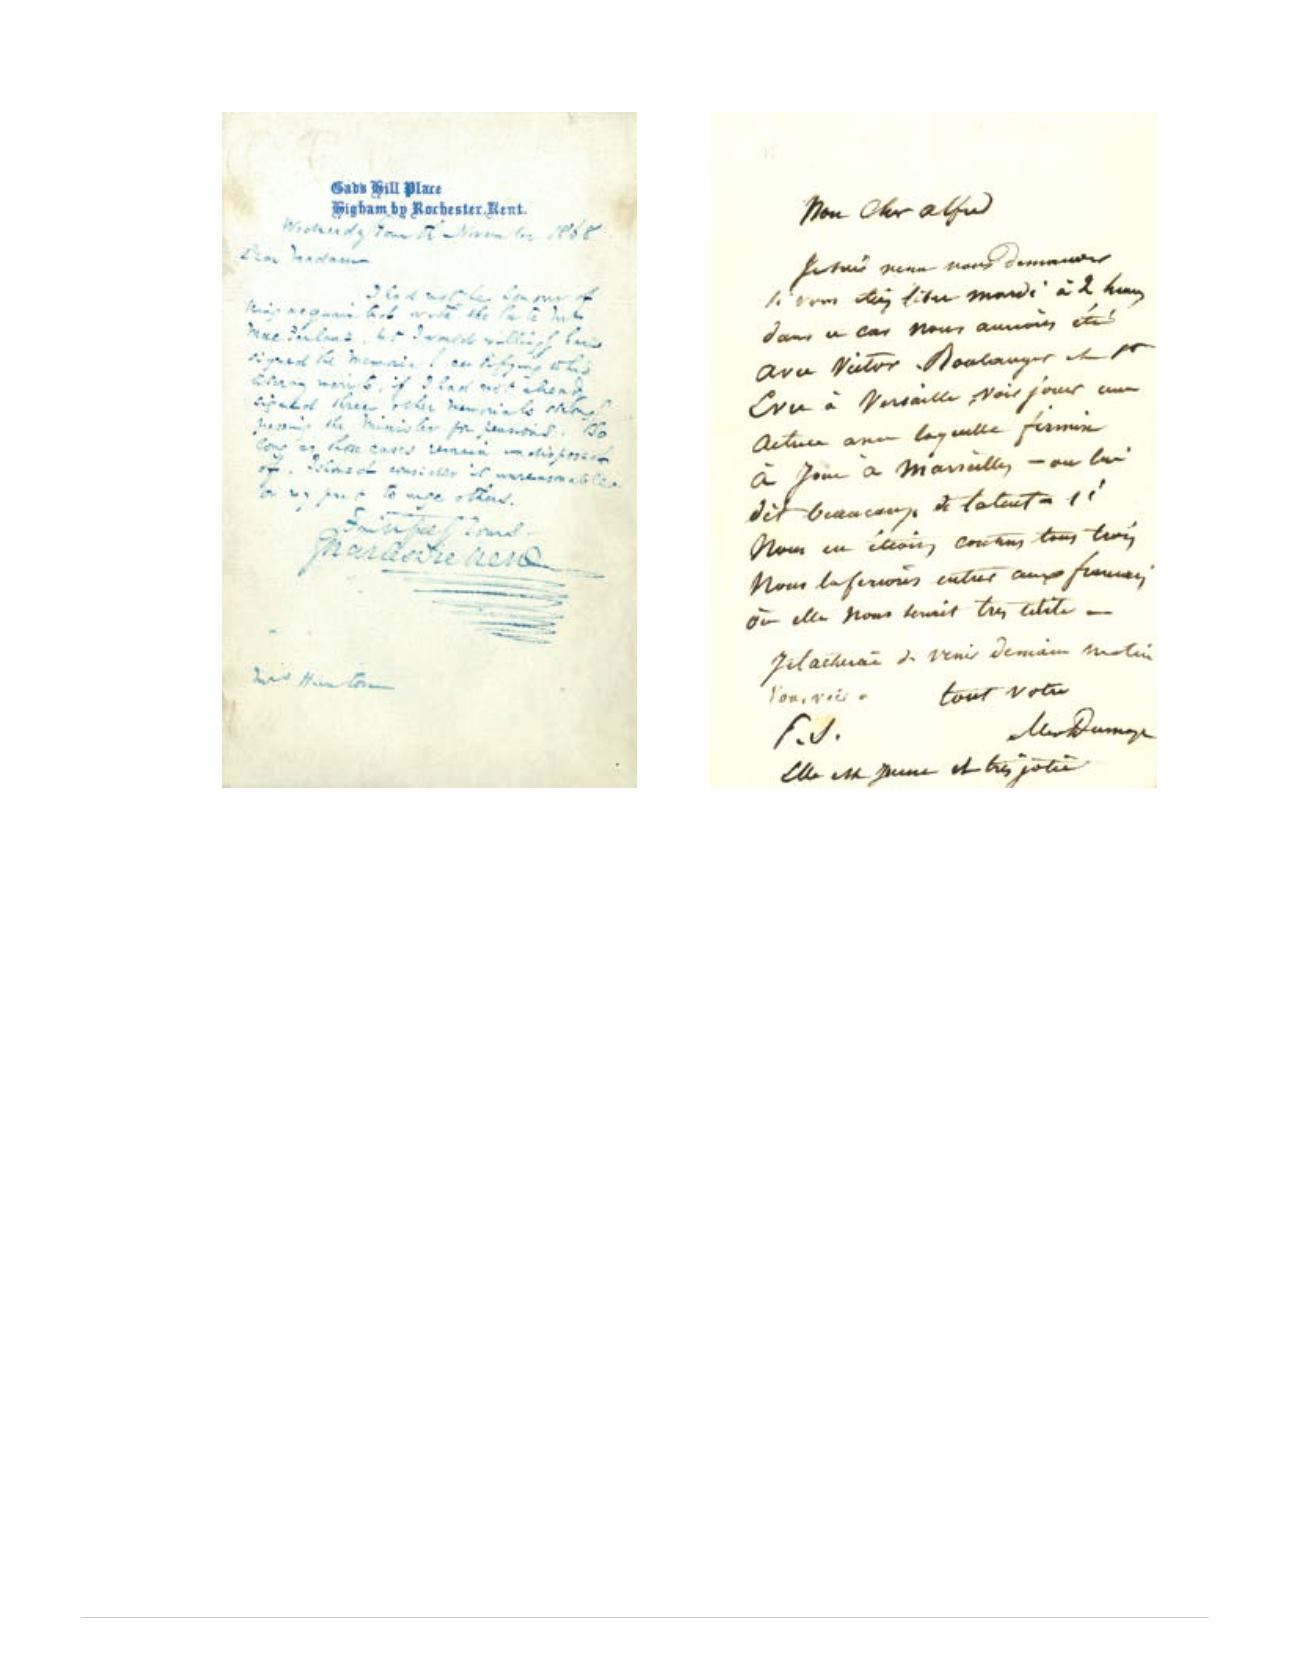 Gad's Hill Place
Higham by Rochester, Kent.
Wednesday Fourth November 1868
Dear Madam
I had not the honour of
being acquainted with the late Mr
Mac Farlane, but I would willingly have
signed the Memorial certifying to his
literary merits, if I had not already
signed three other Memorials strongly
pressing the Minister for pensions. So
long as those cases remain undisposed
of, I should consider it unreasonable
on my part to urge others.
Faithfully Yours
Charles Dickens
Mrs Hunton
Mon cher alfred
Je suis venu vous demander
si vous étiez libre mardi à 2 heures
dans ce cas nous aurions été
avec Victor Boulanger et
à Versaille voir jouer une
actrice avec laquelle firmin
à Joué à Marseilles — on lui
dit beaucoup de talent — si
Nous en étions contens tous trois
Nous la ferions entrer aux français
où elle nous serait tres utile —
Je tacherai de venir demain matin
vous voir — tout votre
P.S. Alex Dumas
Elle est jeune et très jolie